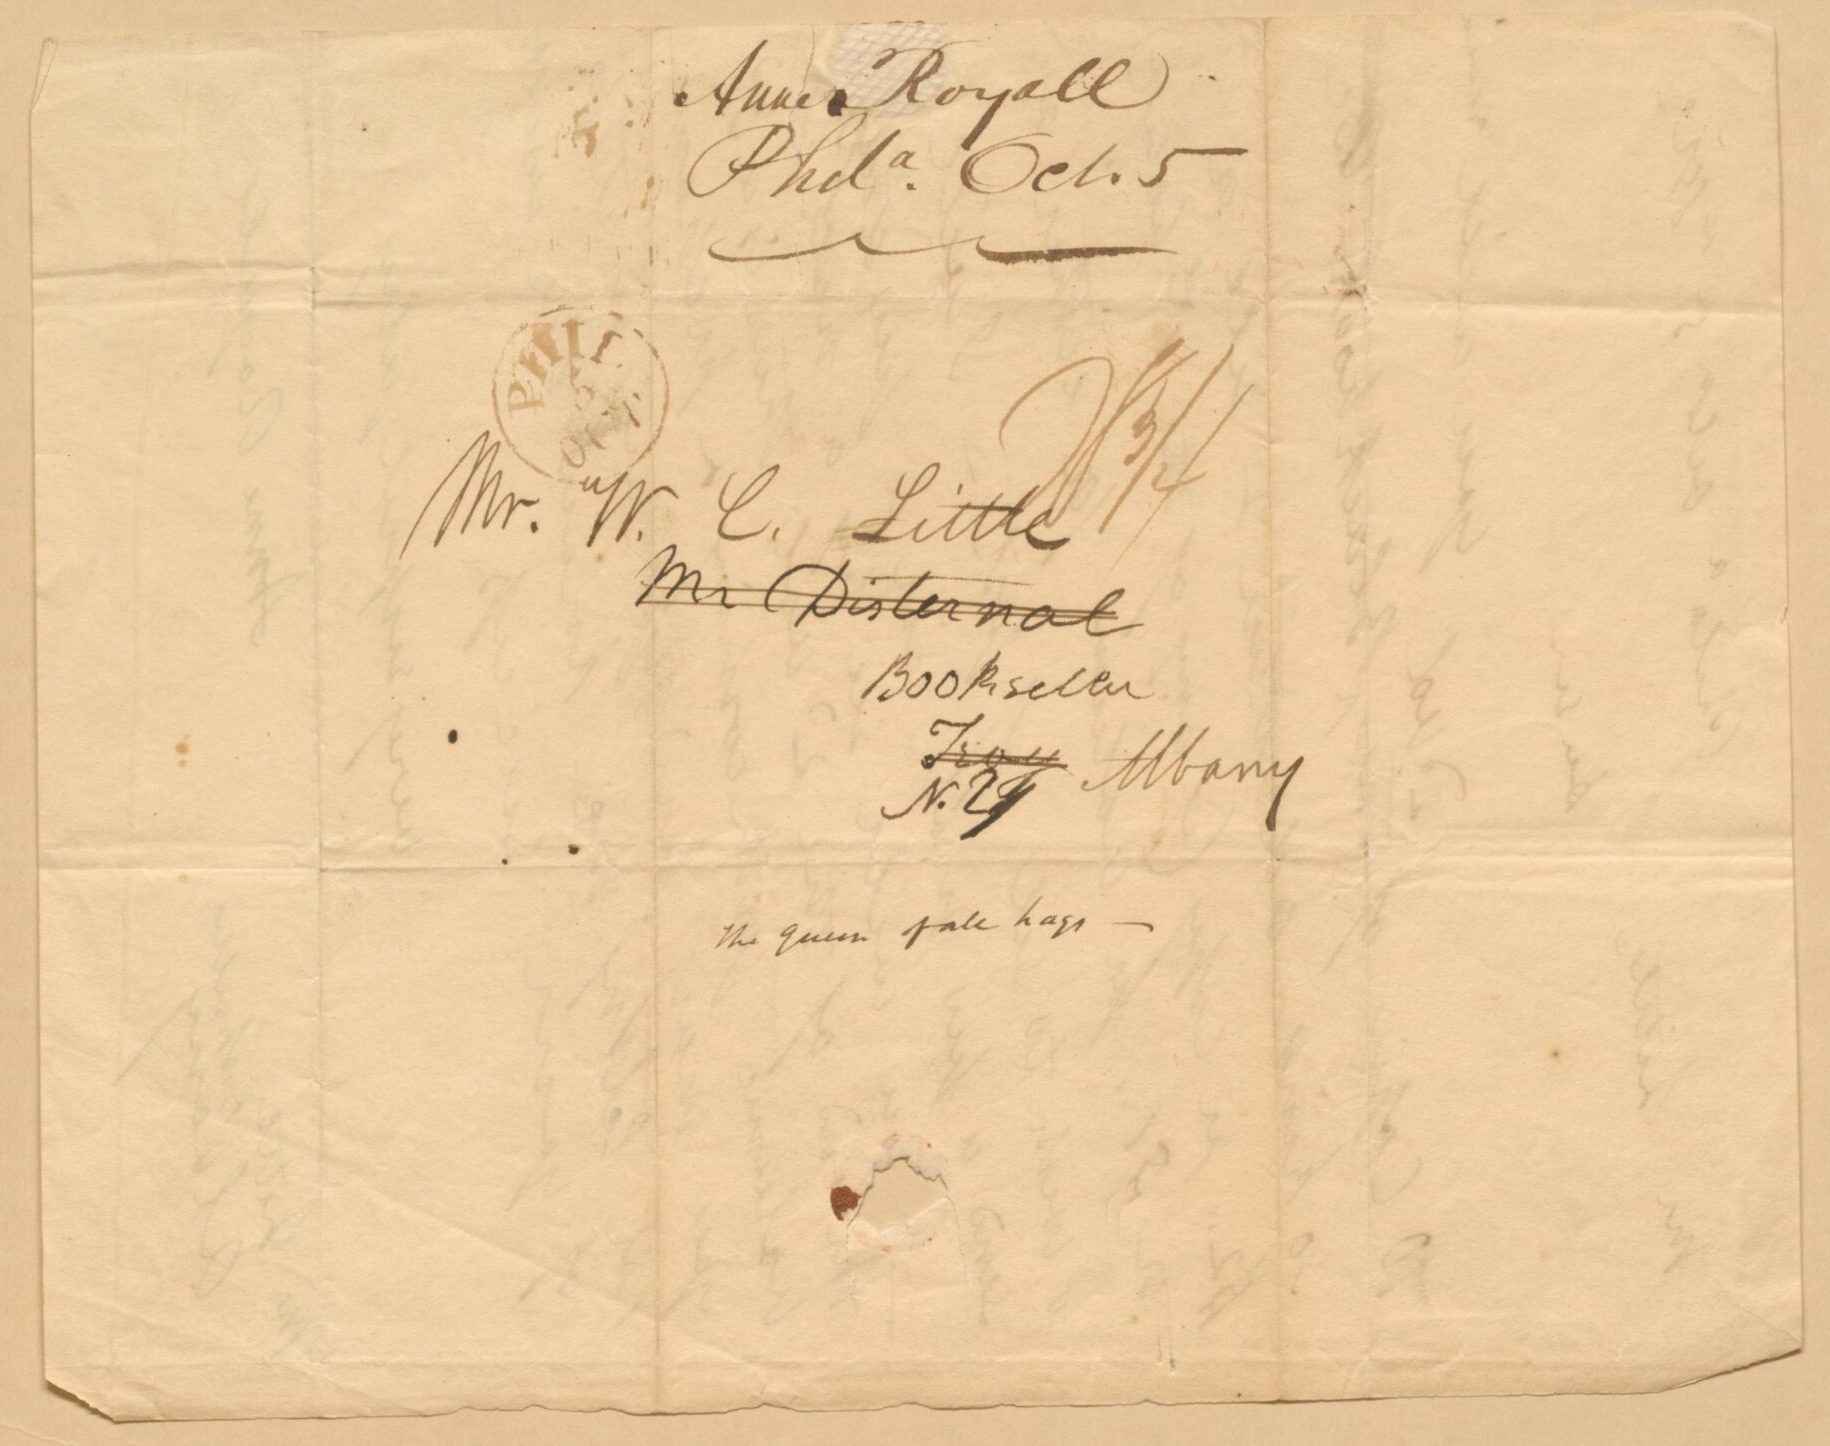 Anne Royall
Phila. Oct. 5
PHIL
5
OCT
18 3/4
Mr. W. C. Little
Mr Disternal
Bookseller
Troy Albany
N. Y
the queen of all hags —